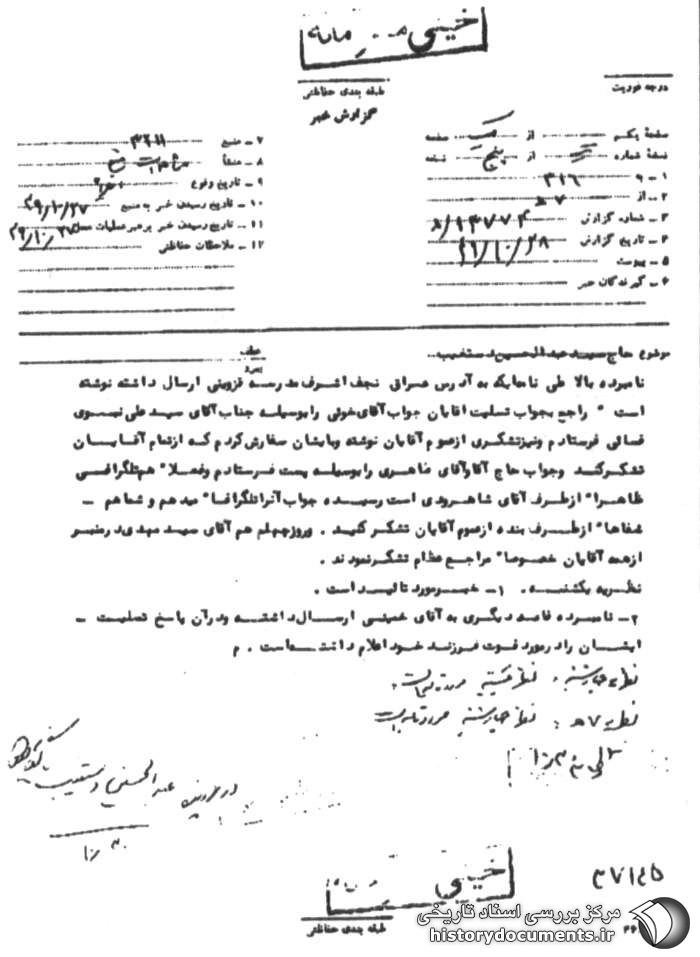 خیلی محرمانه
طبقه بندی حفاظتی
درجه فوریت
گزارش خبر
صفحه یکم از یک صفحه
نسخه شماره از پنج نسخه
۱ ـ به ۳۱۶
۲ ـ از ۷ ه
۳ ـ شماره گزارش
۴ ـ تاریخ گزارش ۴۹/۱۰/۲۸
۵ ـ پیوست
۶ ـ گیرندگان خبر
۷ ـ منبع
۸ ـ منشأ
۹ ـ تاریخ وقوع
۱۰ ـ تاریخ رسیدن خبر به منبع ۴۹/۱۰/۲۷
۱۱ ـ تاریخ رسیدن خبر برهبر عملیات ۴۹/۱۰/۲۷
۱۲ ـ ملاحظات حفاظتی
موضوع حاج سید عبدالحسین دستغیب
عطف
پیرو
نامبرده بالا طی نامه‌ایکه به آدرس عراق نجف اشرف مدرسه قزوینی ارسال داشته نوشته
است " راجع بجواب تسلیت آقایان جواب آقای خوئی را بوسیله جناب آقای سید علی نبوی
فسائی فرستادم ونیز تشکری ازعموم آقایان نوشته وبایشان سفارش کردم که ازتمام آقایان
تشکرکنند وجواب حاج آقا وآقای طاهری را بوسیله پست فرستادم وفعلا" هم تلگرافی
ظاهرا" ازطرف آقای شاهرودی است رسیده جواب آنرا تلگرافا" میدهم و شما هم ـ
شفاها" ازطرف بنده ازعموم آقایان تشکر کنید . وروز چهلم هم آقای سید مهدی در منبر
ازهمه آقایان خصوصا" مراجع عظام تشکر نمودند .
نظریه یکشنبه . ۱ـ خبر مورد تائید است .
۲ـ نامبرده نامه دیگری به آقای خمینی ارسال داشته ودرآن پاسخ تسلیت ـ
ایشان را در مورد فوت فرزند خود اعلام داشته است . م
نظریه چهارشنبه .
نظریه ۷ ه : نظریه چهارشنبه مورد تائید است
در پرونده عبدالحسین دستغیب
خیلی
طبقه بندی حفاظتی
۳۷۱۴۵
مرکز بررسی اسناد تاریخی
historydocuments.ir